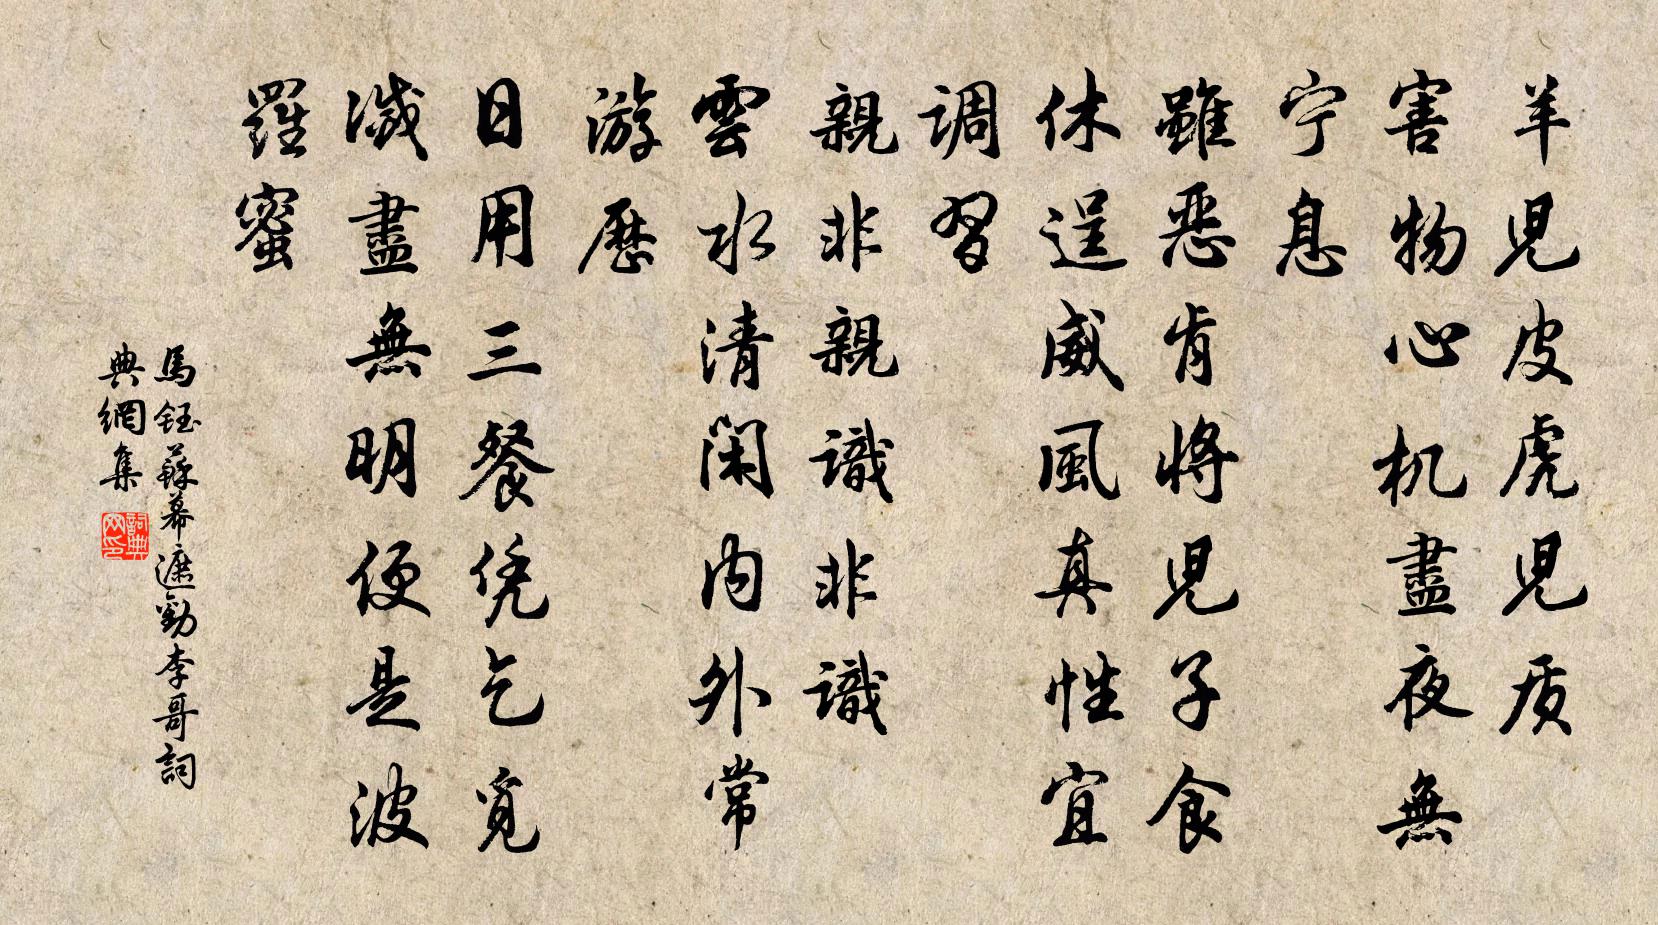 羊児皮虎児质
害物心机盡夜無
宁息
雖恶肯将児子食
休逞威風真性宜
调習
親非親識非識
雲水清闲内外常
游歷
日用三餐凭乞覓
滅盡無明便是波
羅蜜
馬鈺蘇幕遮勸李哥詞
典網集
詞典网印